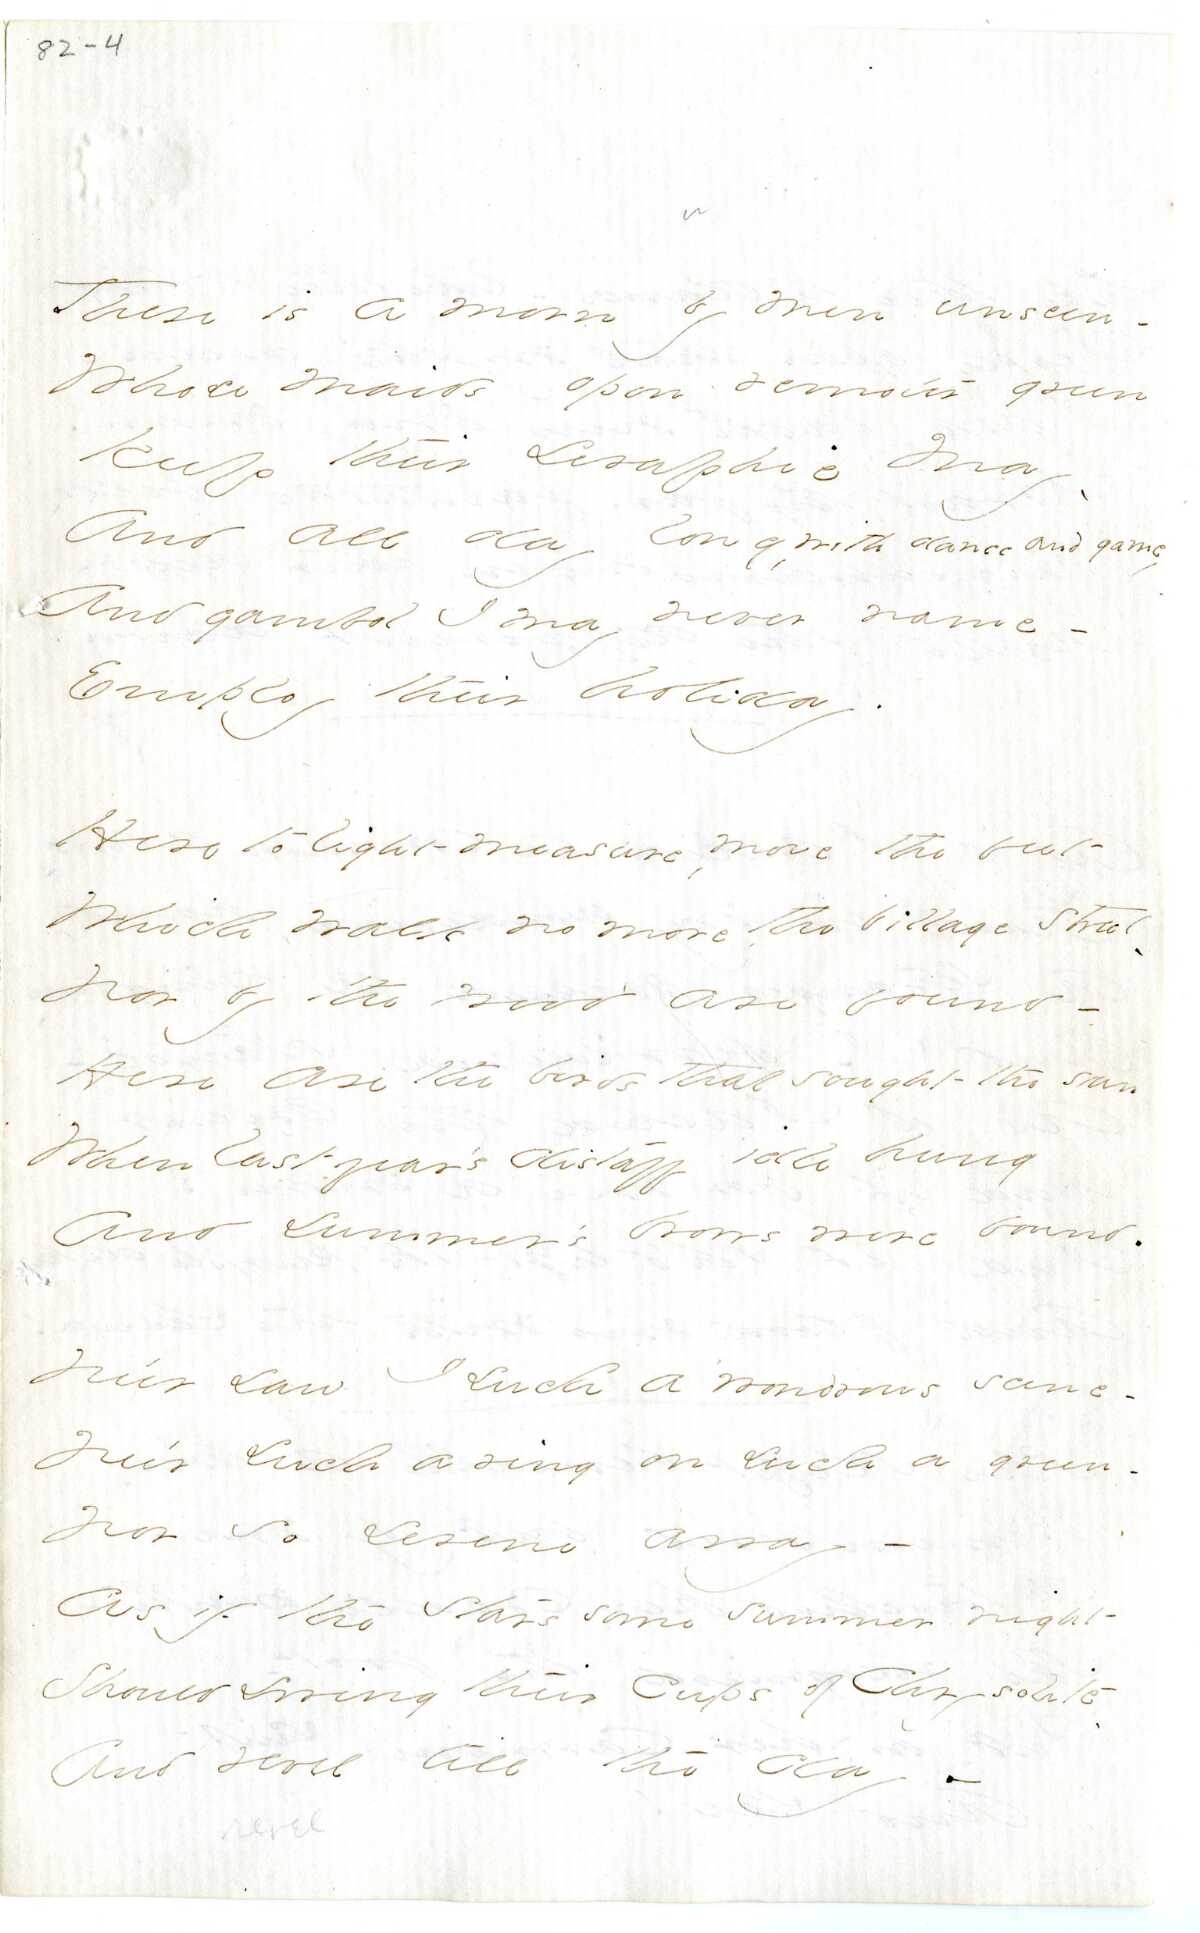 82-4
There is a morn by men unseen -
Whose maids upon remoter green
Keep their Seraphic May,
And all day long, with dance and game,
And gambol I may never name -
Employ their holiday.
Here to light measure, move the feet
Which walk no more the village street,
Nor by the wood are found -
Here are the birds that sought the sun
When last year's distaff idle hung
And Summer's brows were bound.
Ne'er saw I such a wondrous scene -
Ne'er such a ring on such a green -
Nor so serene array -
As if the stars some summer night
Should swing their Cups of Chrysolite,
And revel till the day -
revel